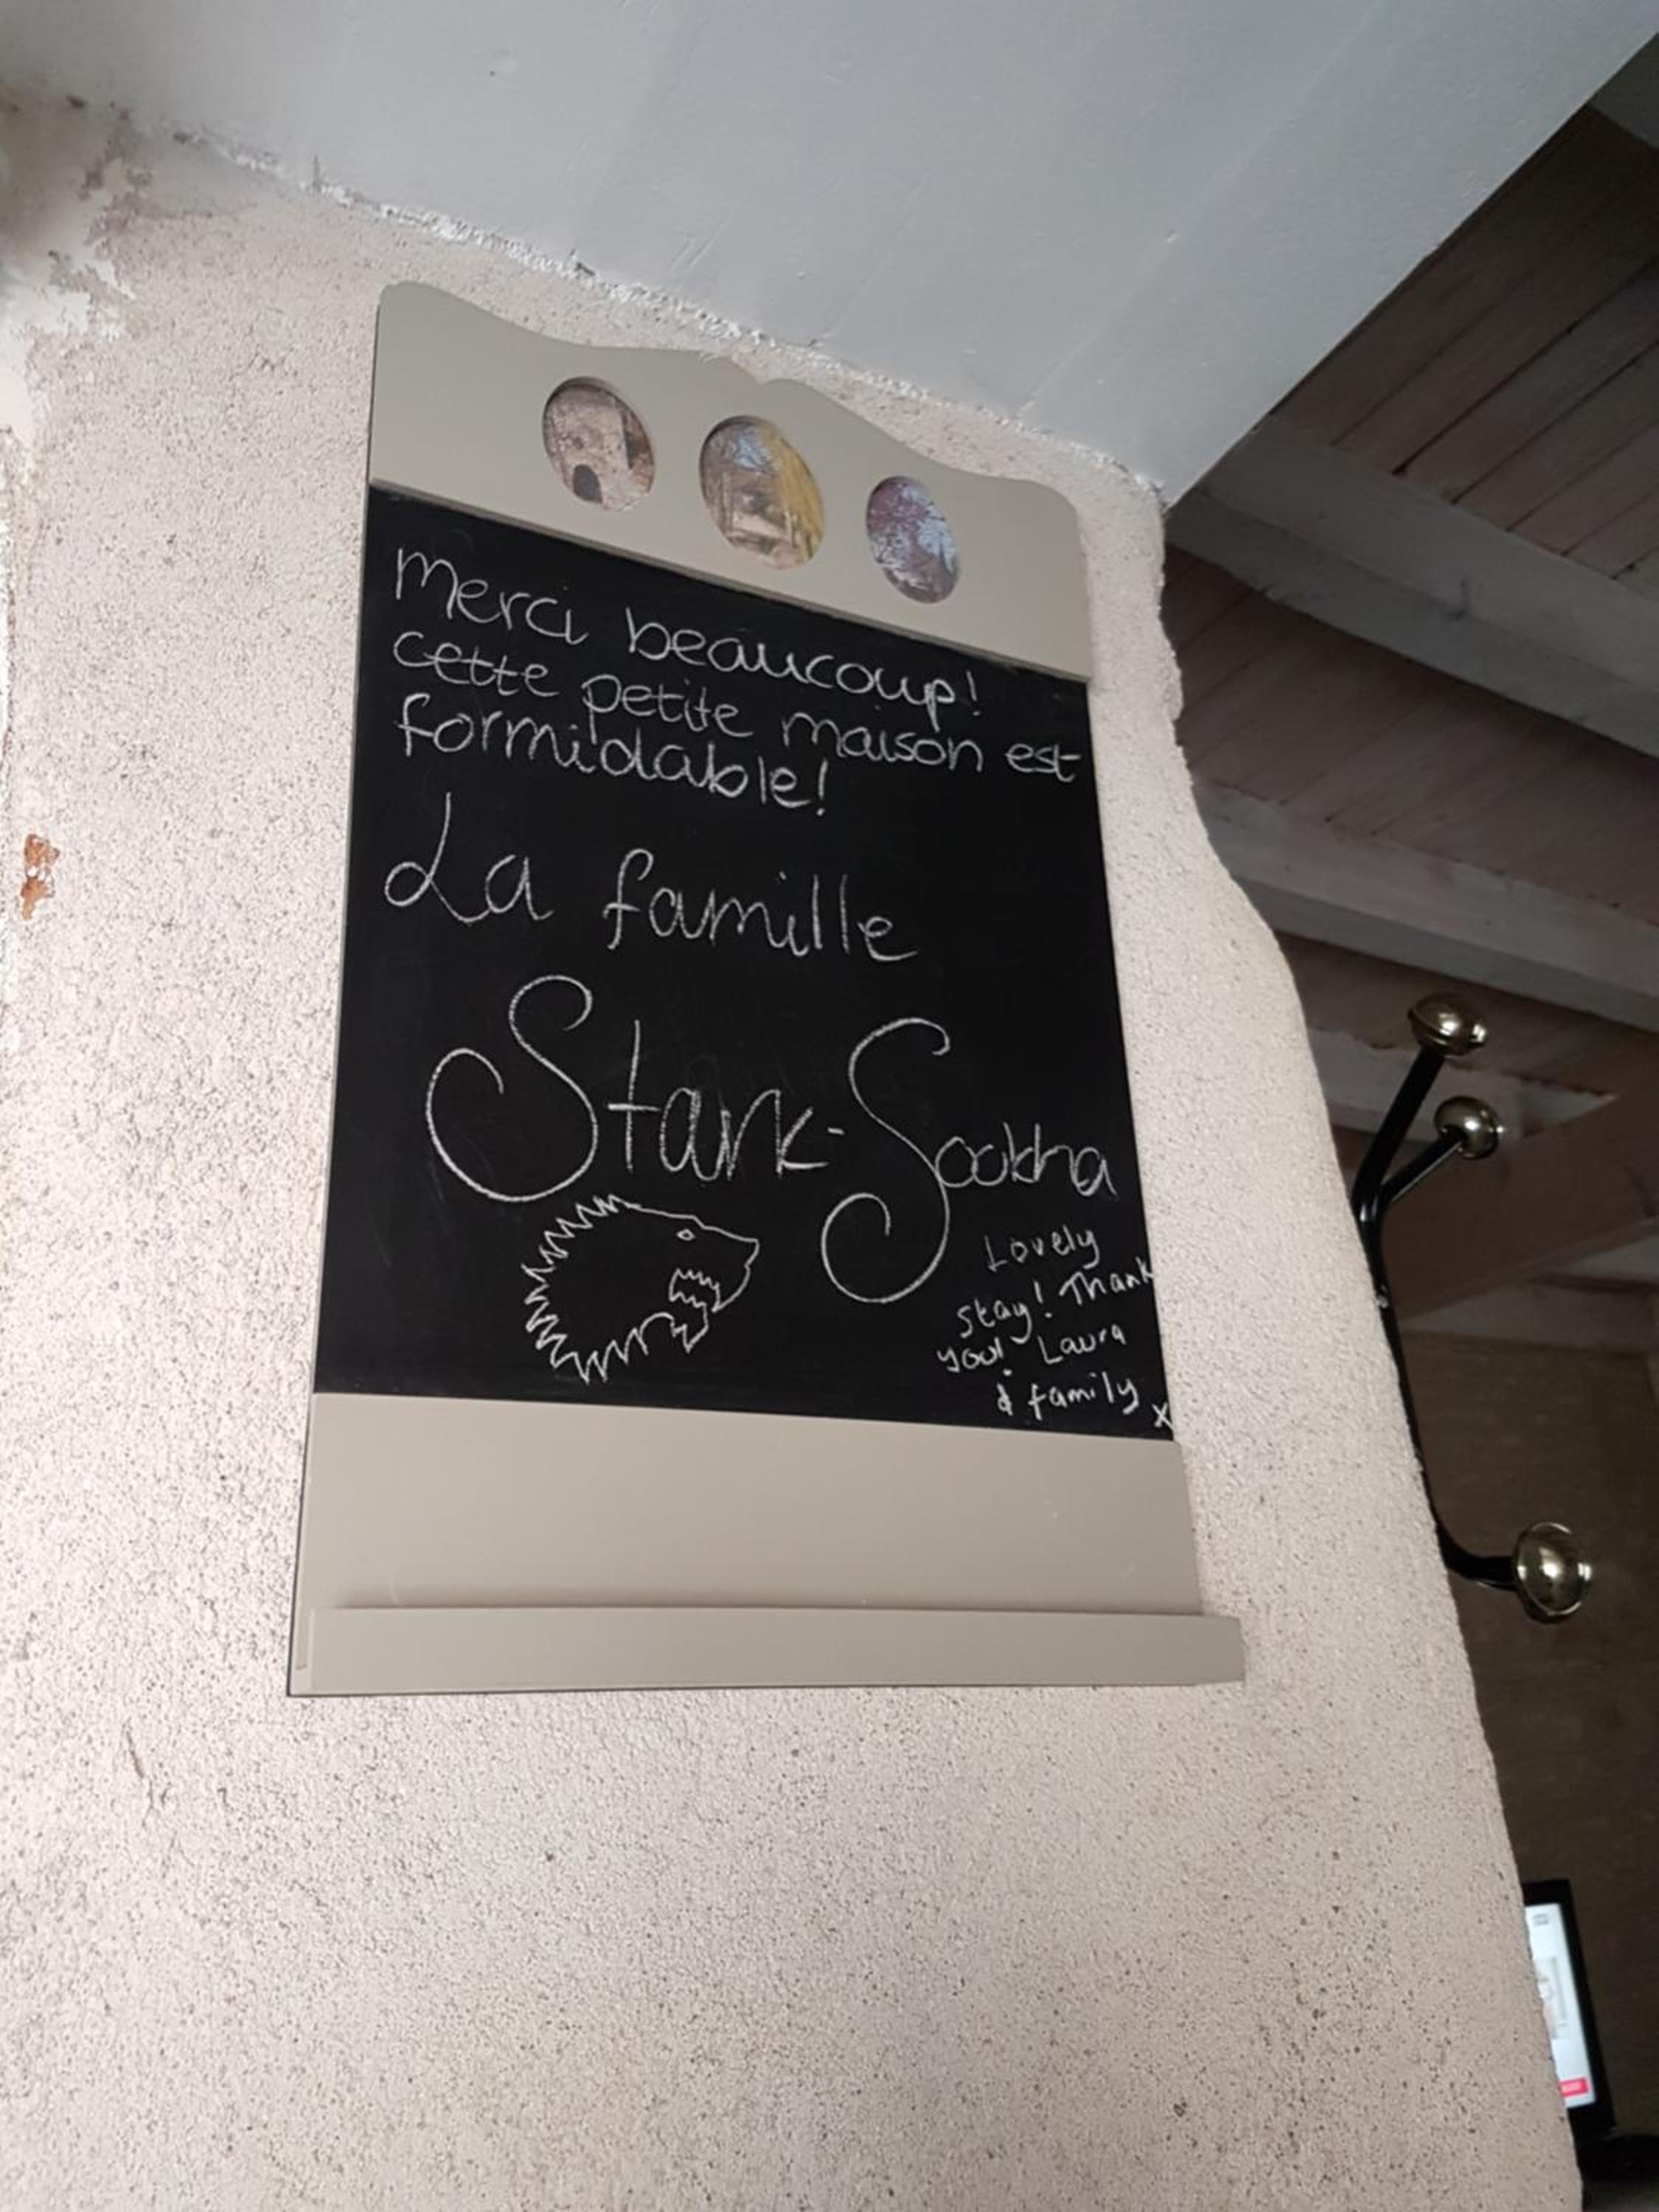 Merci beaucoup!
cette petite maison est
formidable!
La famille
Stark-Sookha
Lovely
stay! Thank
you! Laura
& family x